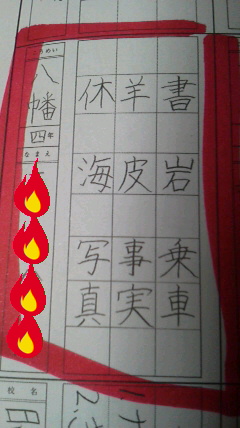 書
岩
乗車
羊
皮
事実
休
海
写真
八幡
四年
なまえ
校名